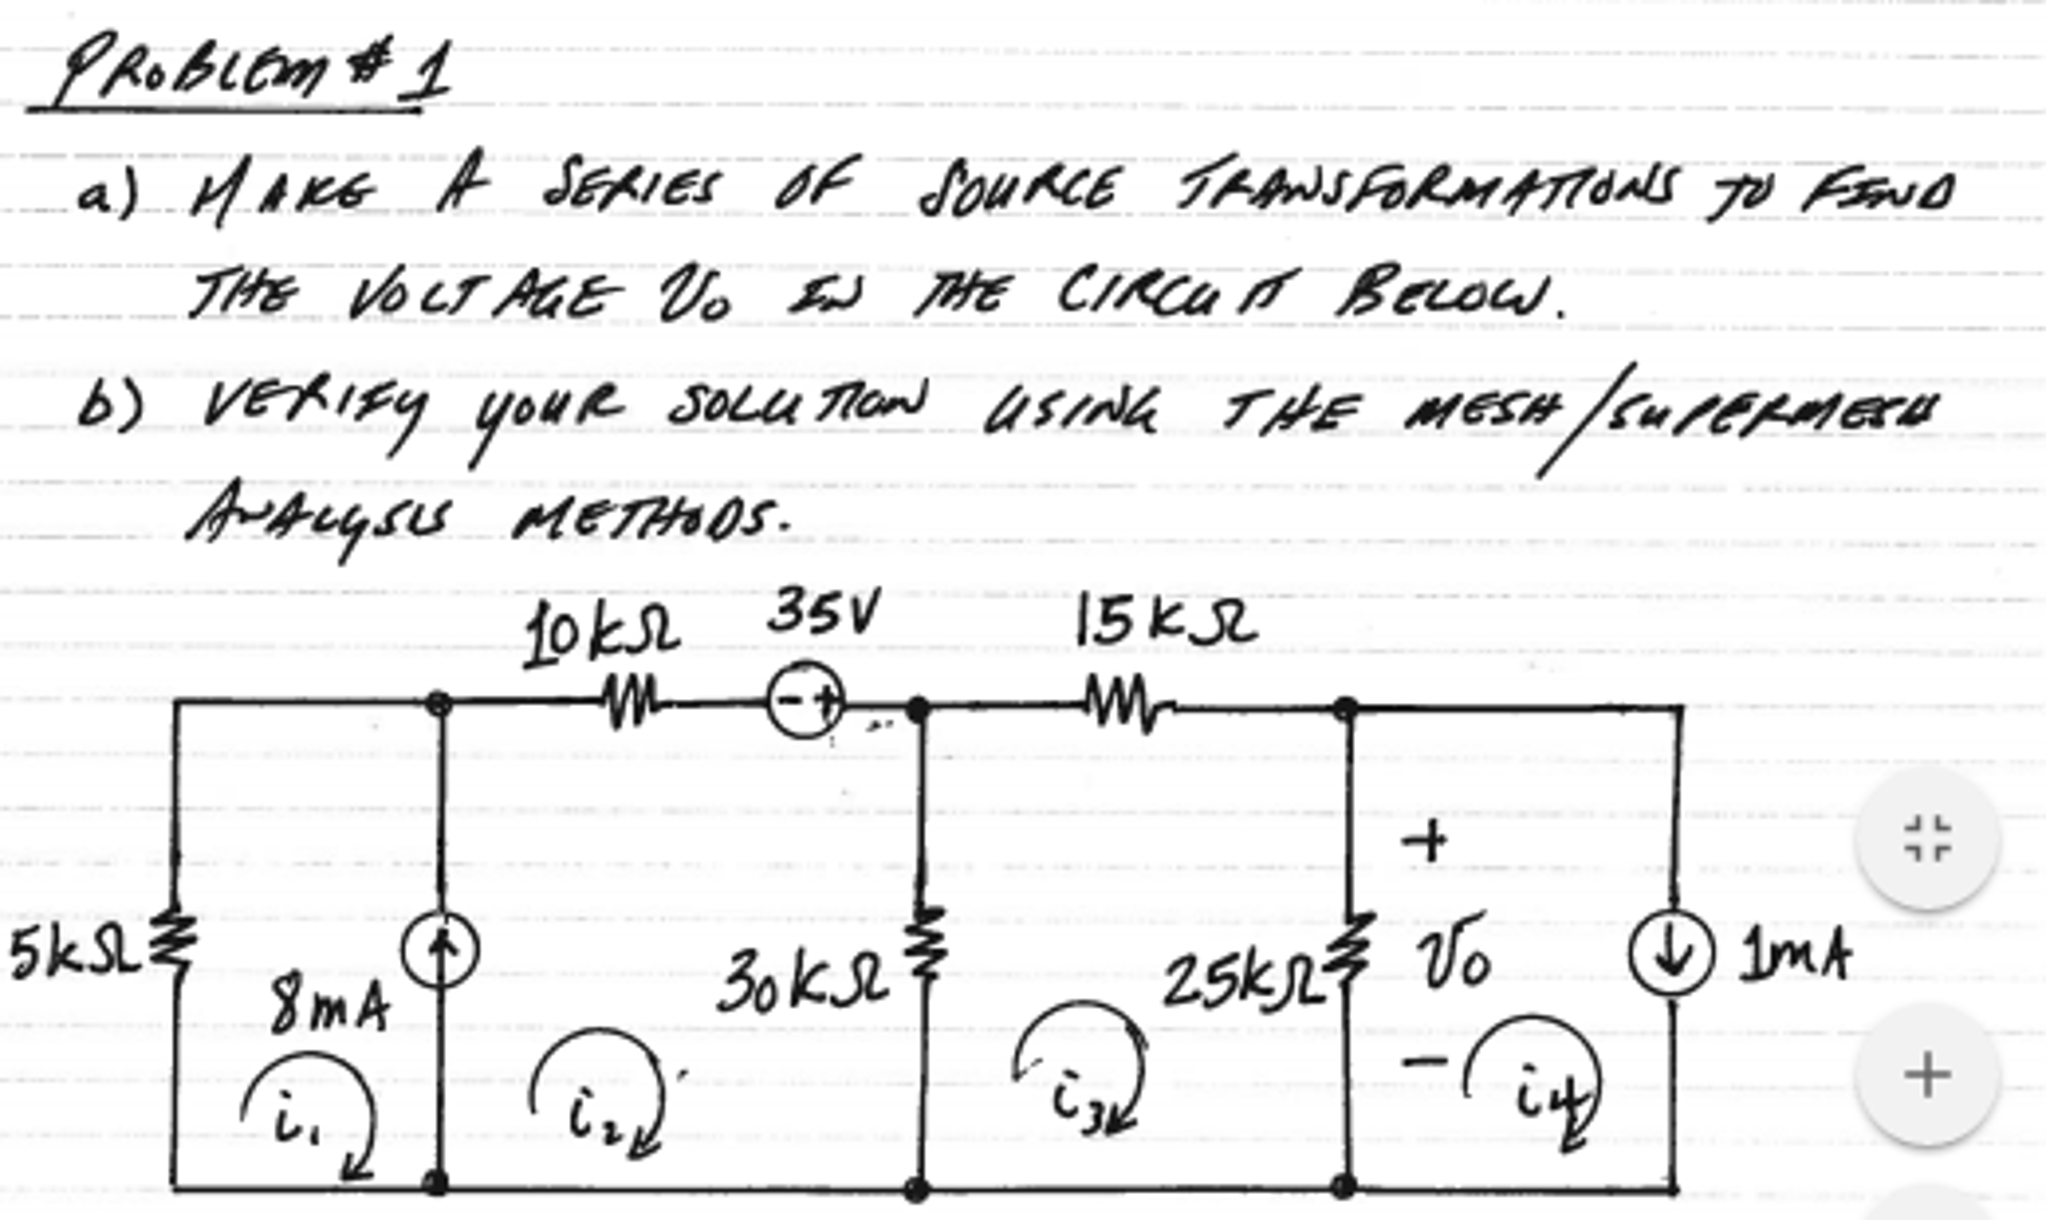 PROBLEM # 1
a) MAKE A SERIES OF SOURCE TRANSFORMATIONS TO FIND
THE VOLTAGE Vo IN THE CIRCUIT BELOW.
b) VERIFY YOUR SOLUTION USING THE MESH/SUPERMESH
ANALYSIS METHODS.
10kΩ 35V 15kΩ
- +
+
5kΩ 8mA 30kΩ 25kΩ Vo 1mA
-
i1 i2 i3 i4